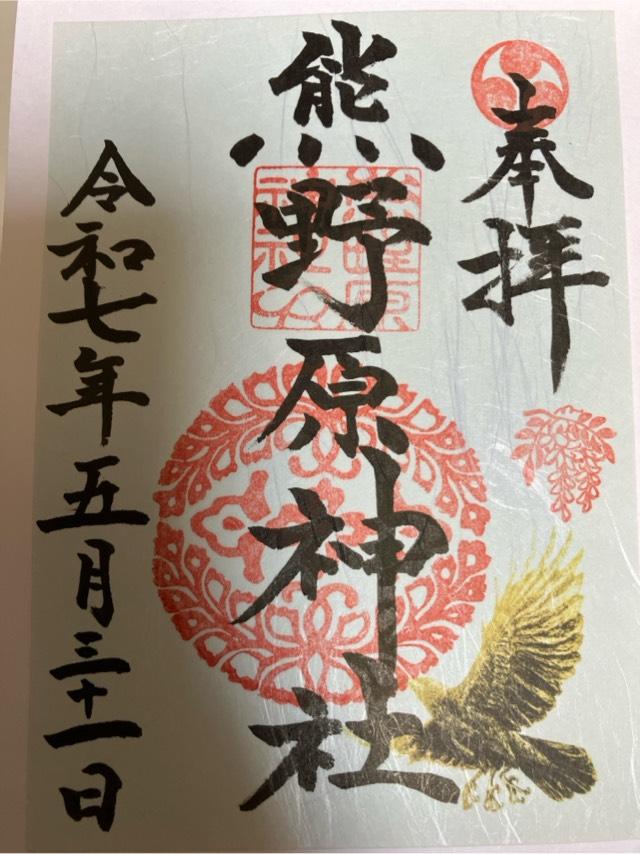 奉拝
熊野原神社
令和七年五月三十一日